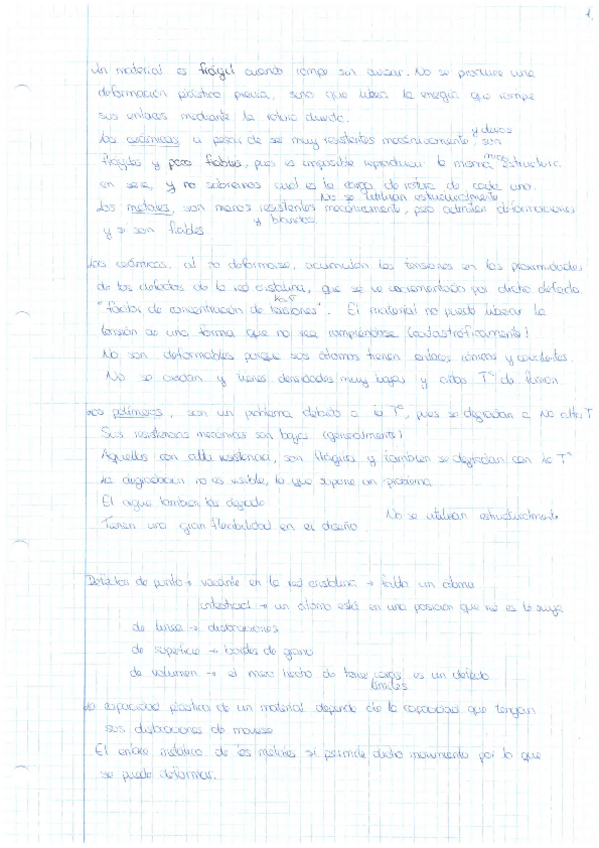 1.
Un material es frágil cuando rompe sin avisar. No se produce una
deformación plástica previa, sino que libera la energía que rompe
sus enlaces mediante la rotura directa.
y duros
Los cerámicos a pesar de ser muy resistentes mecánicamente, son
frágiles y poco fiables, pues es imposible reproducir la misma estructura
en serie, y no sabremos cual es la carga de rotura de cada uno.
No se utilizan estructuralmente
Los metales, son menos resistentes mecánicamente, pero admiten deformaciones
y blandos
y si son fiables
Los cerámicos, al no deformarse, acumulan las tensiones en las proximidades
de los defectos de la red cristalina, que se ve incrementada por dicho defecto
"factor de concentración de tensiones". El material no puede liberar la
tensión de una forma que no sea rompiéndose (catastróficamente)
No son deformables porque sus átomos tienen enlaces iónicos y covalentes.
No se oxidan y tienen densidades muy bajas y altas Tª de fusión
Los polímeros, son un problema debido a la Tª, pues se degradan a no alta T
Sus resistencias mecánicas son bajas (generalmente)
Aquellos con alta resistencia, son frágiles y también se degradan con la Tª
La degradación no es visible, lo que supone un problema
El agua también los degrada
No se utilizan estructuralmente
Tienen una gran flexibilidad en el diseño
Defectos de punto → vacante en la red cristalina → falta un átomo
intersticial → un átomo está en una posición que no es la suya
de línea → dislocaciones
de superficie → bordes de grano
de volumen → el mero hecho de tener caras es un defecto
La capacidad plástica de un material depende de la capacidad que tengan
sus dislocaciones de moverse
El enlace metálico de los metales si permite dicho movimiento por lo que
se puede deformar.